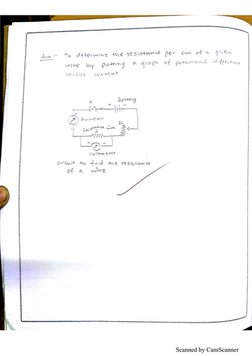 Aim:- To determine the resistance per cm of a given
wire by plotting a graph of potential difference
versus current.
Battery
K
Ammeter
Rh
Voltmeter
circuit to find the resistance
of a wire
Scanned by CamScanner